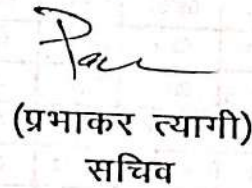 (प्रभाकर त्यागी)
सचिव